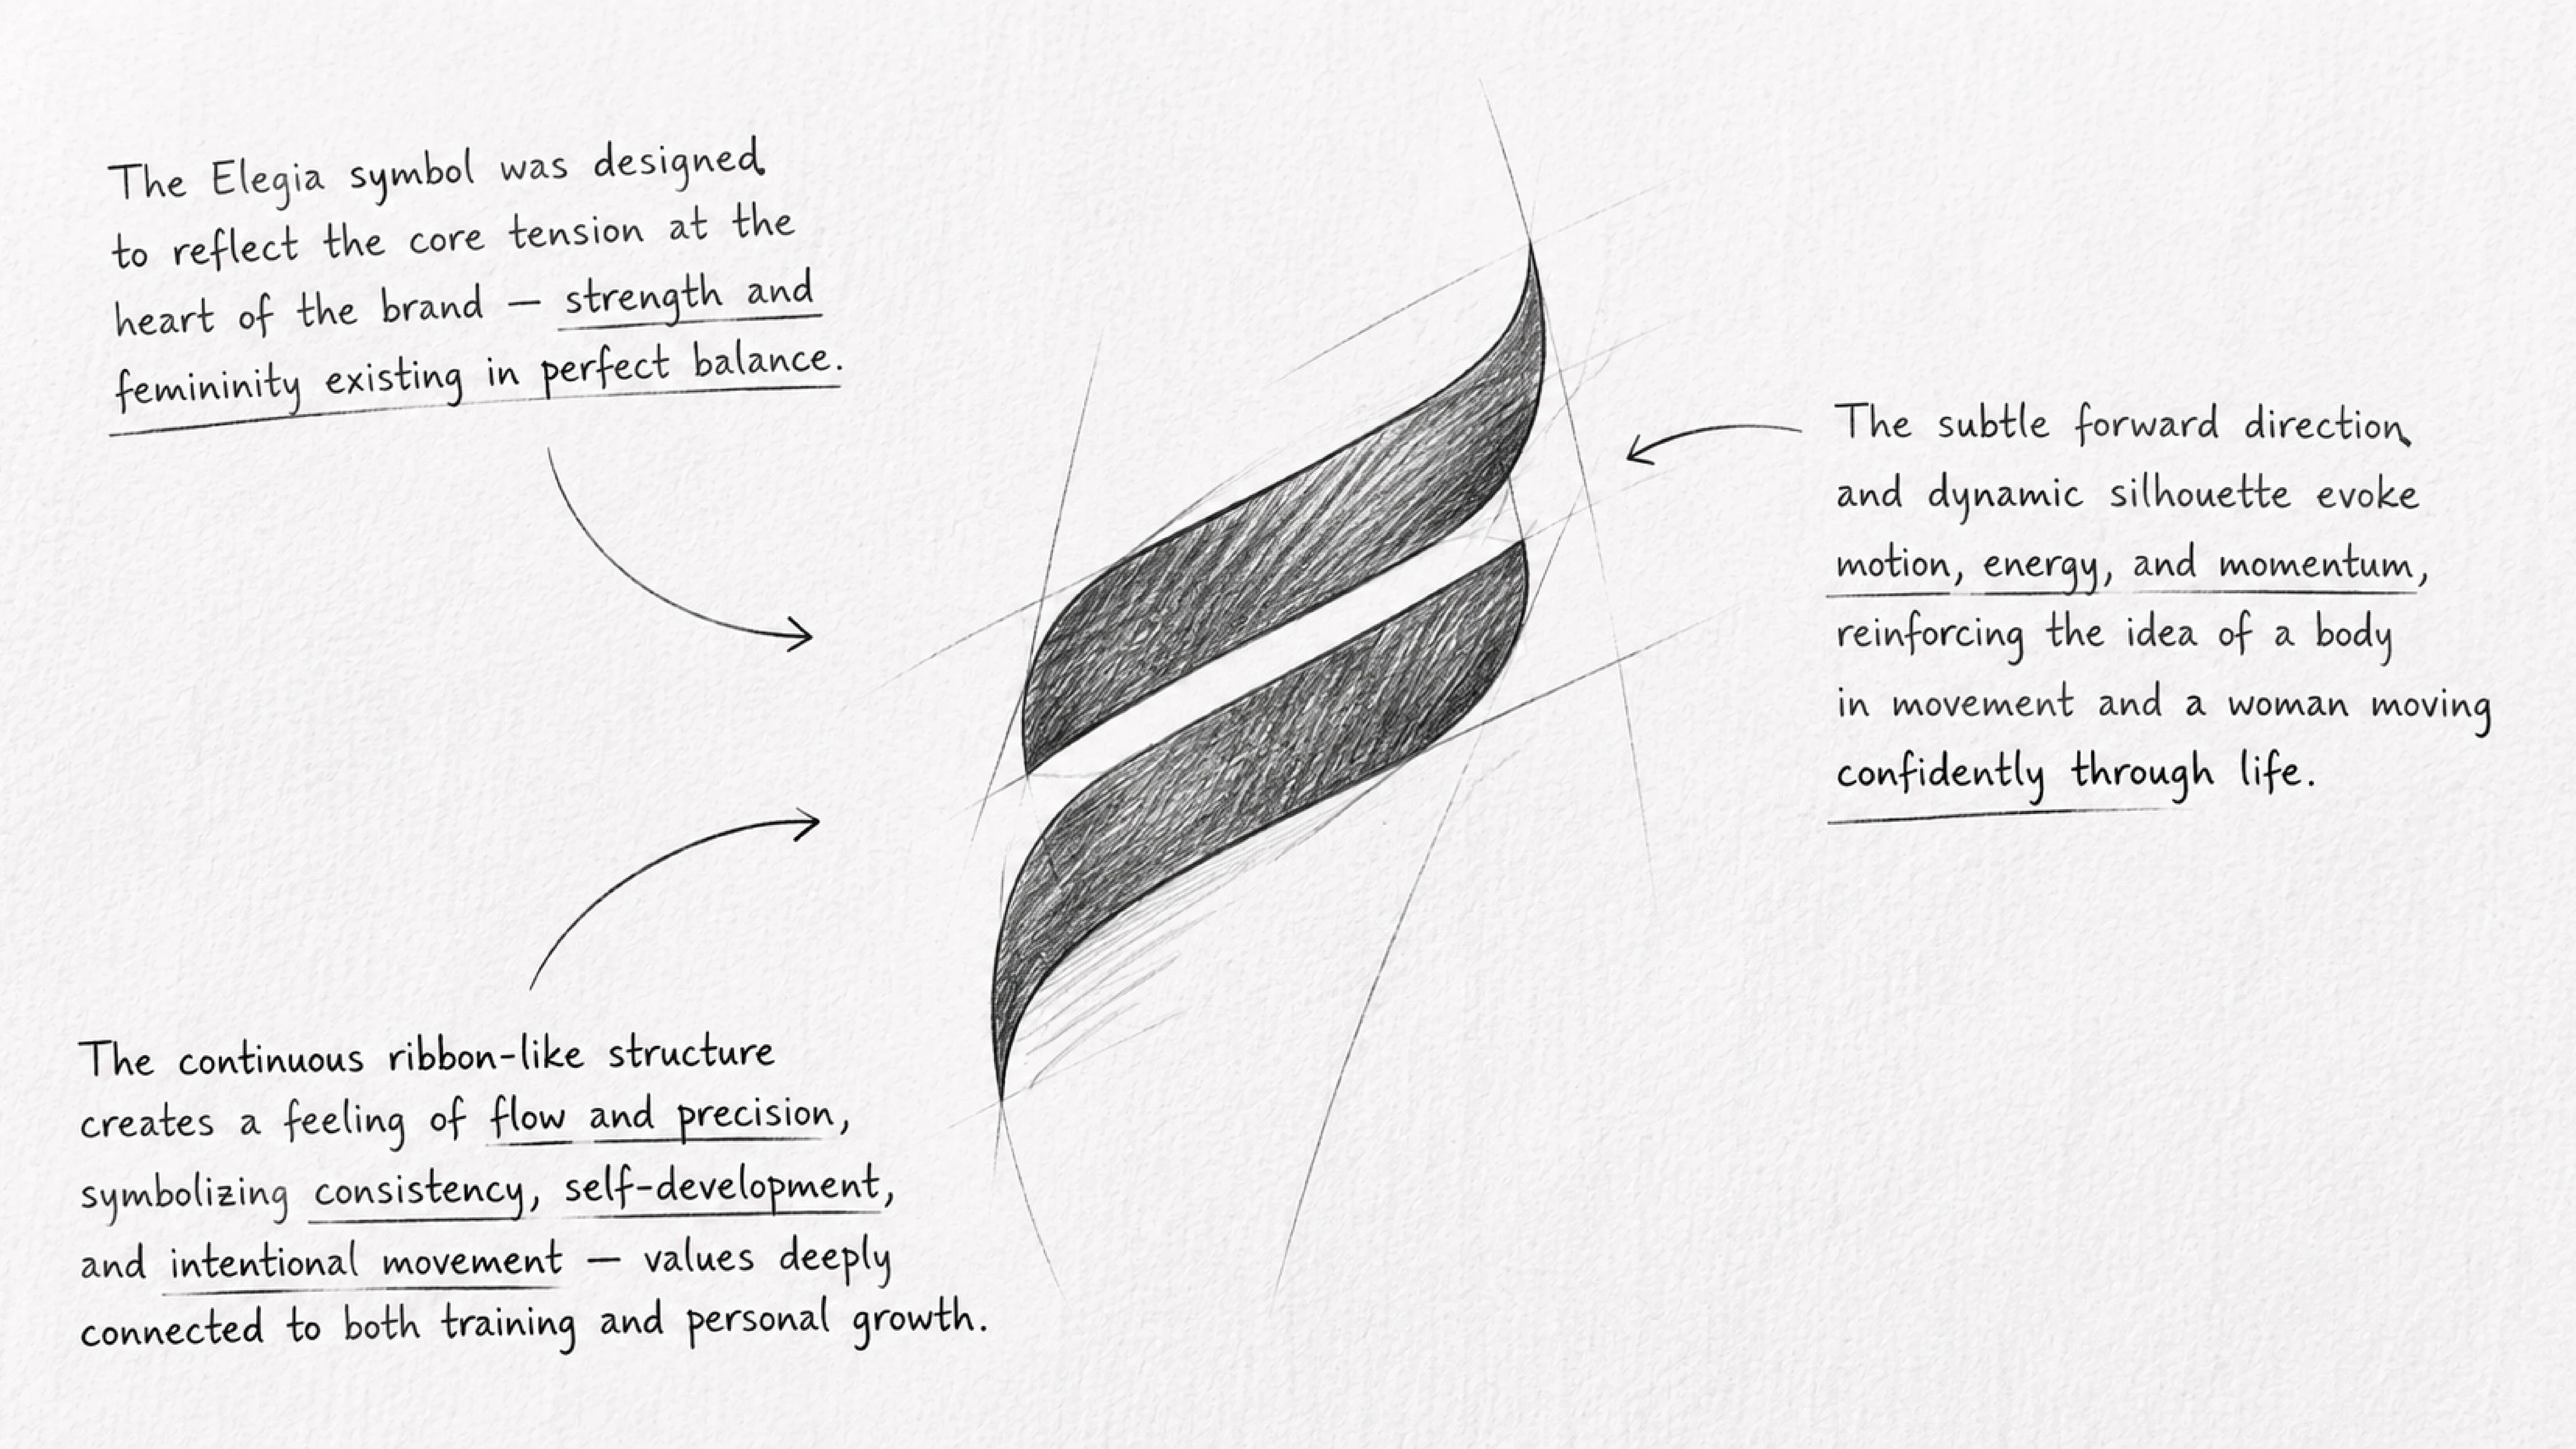 The Elegia symbol was designed
to reflect the core tension at the
heart of the brand — strength and
femininity existing in perfect balance.
The subtle forward direction
and dynamic silhouette evoke
motion, energy, and momentum,
reinforcing the idea of a body
in movement and a woman moving
confidently through life.
The continuous ribbon-like structure
creates a feeling of flow and precision,
symbolizing consistency, self-development,
and intentional movement — values deeply
connected to both training and personal growth.